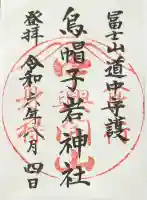 冨士山道中守護
烏帽子岩神社
登拝 令和六年八月四日